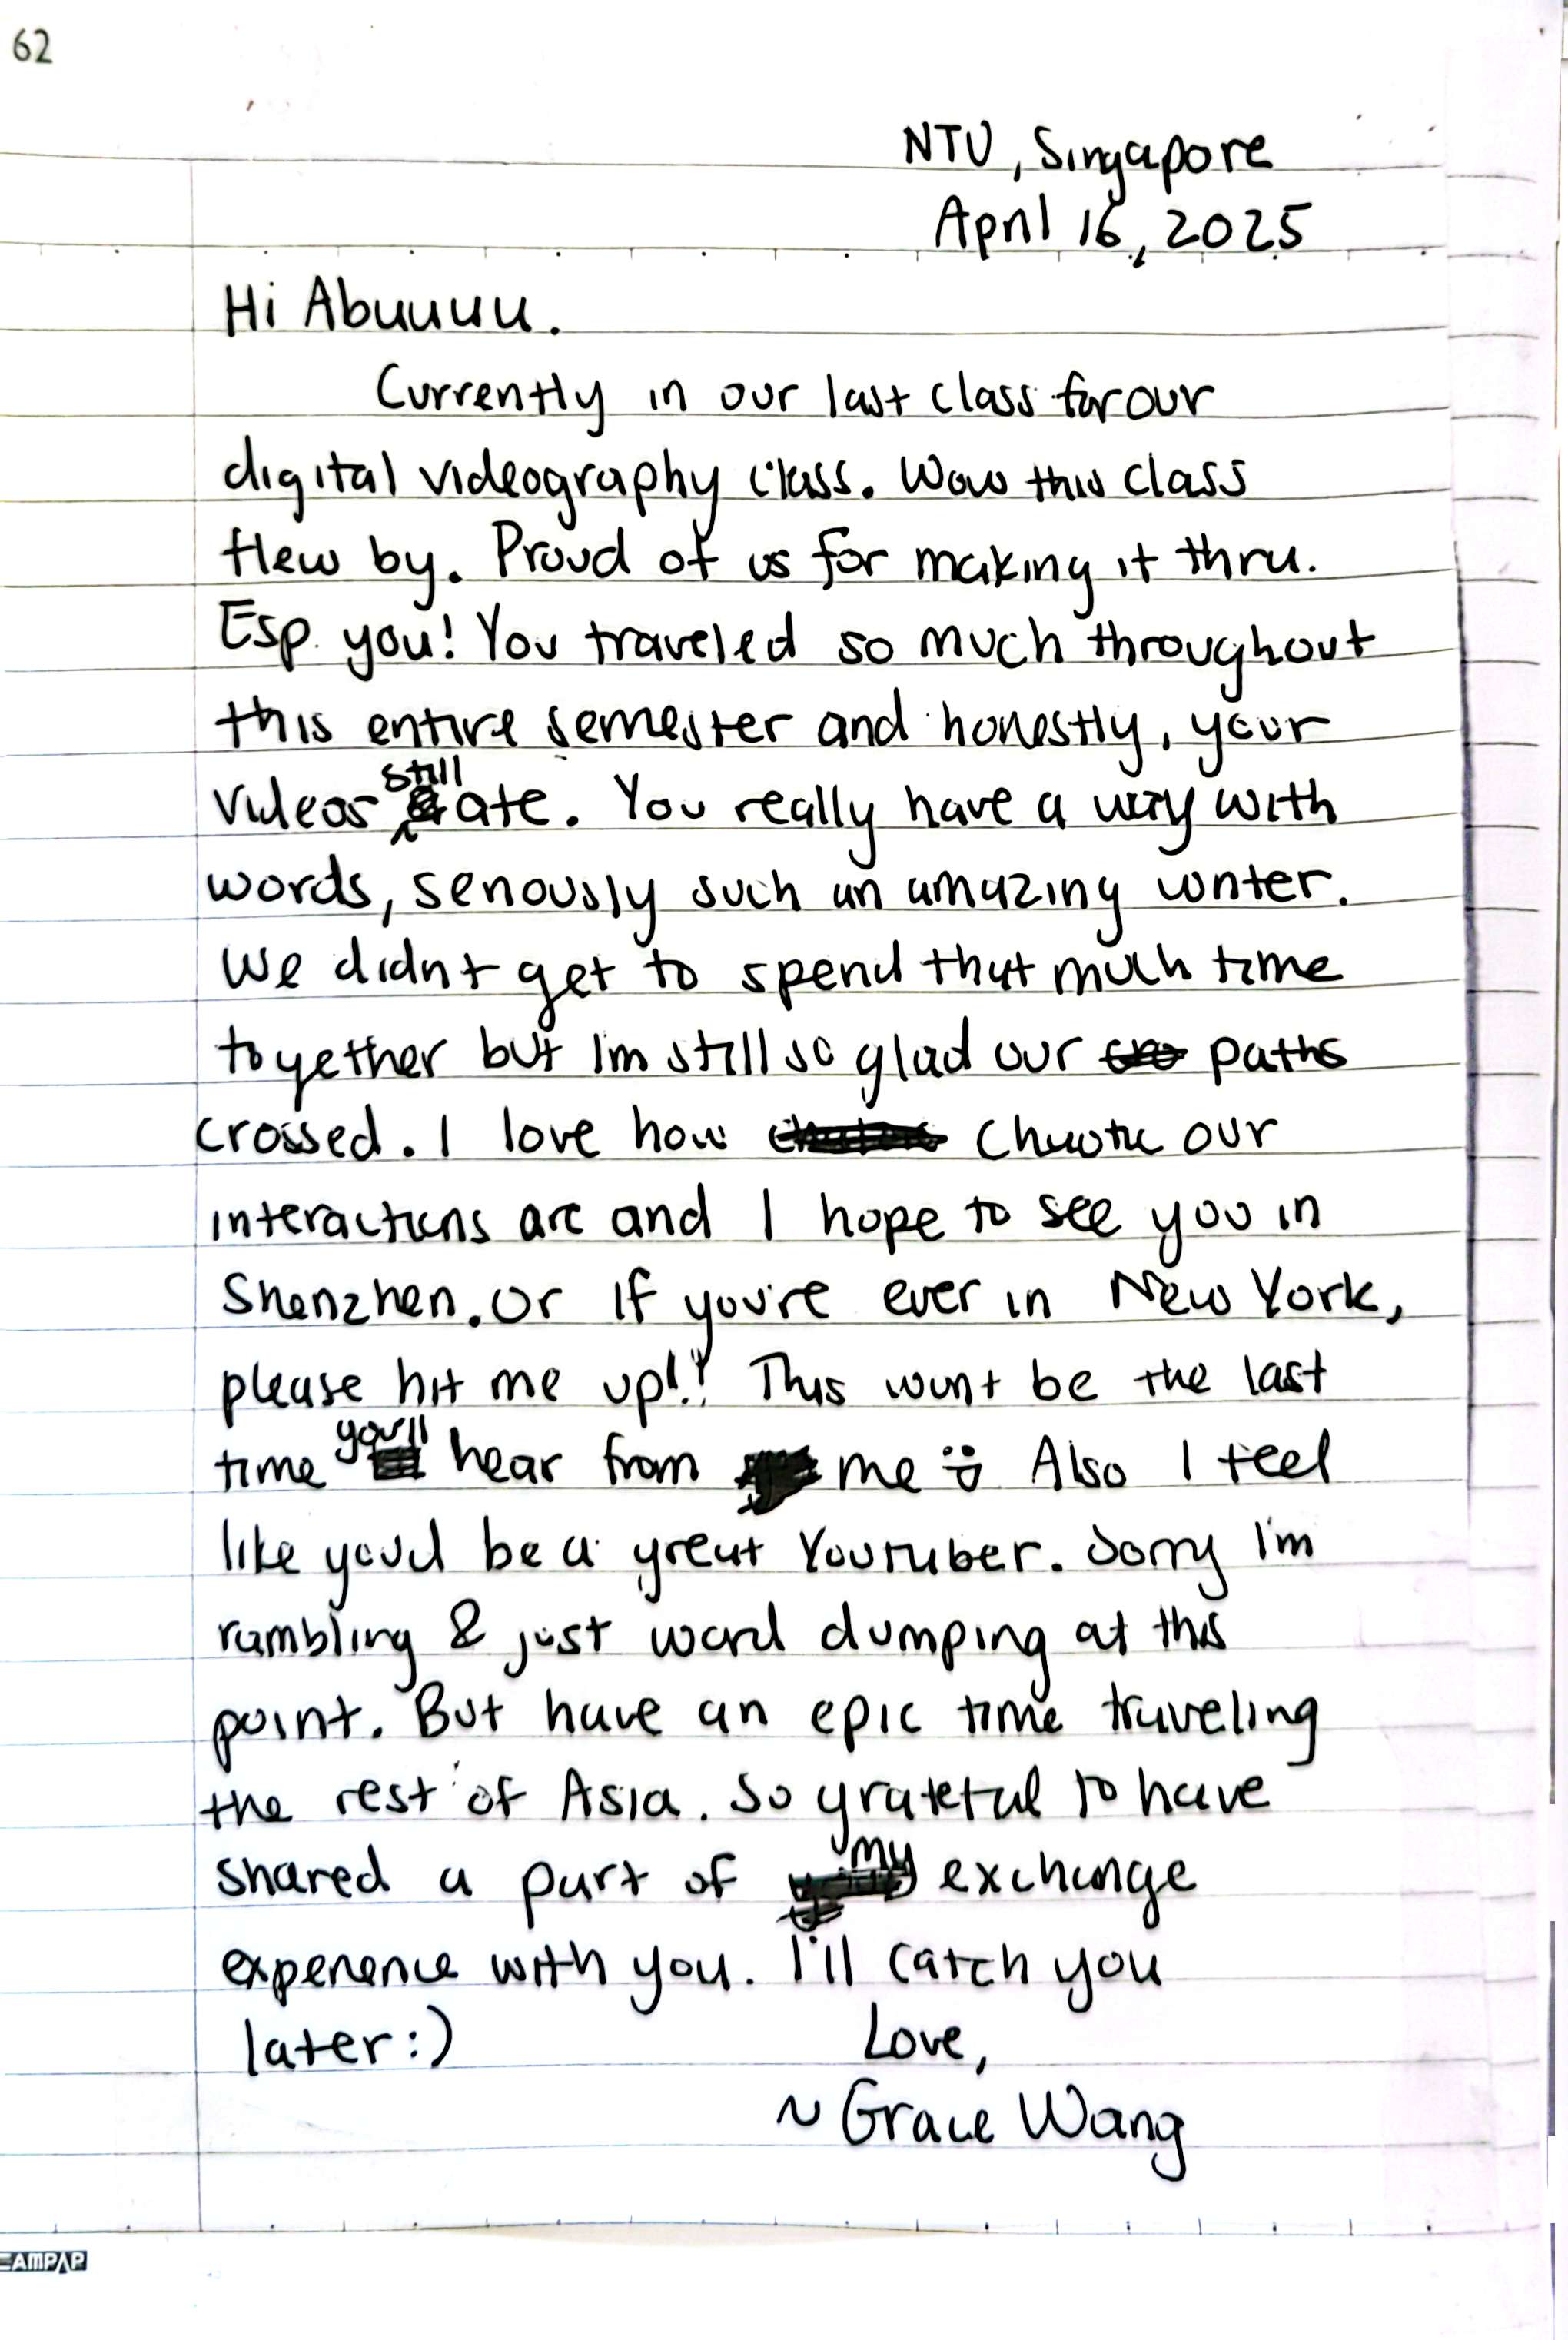 62
NTU, Singapore
April 16, 2025
Hi Abuuuu.
Currently in our last class for our
digital videography class. Wow this class
flew by. Proud of us for making it thru.
Esp. you! You traveled so much throughout
this entire semester and honestly, your
videos still ate. You really have a way with
words, seriously such an amazing writer.
We didnt get to spend that much time
together but I'm still so glad our paths
crossed. I love how chaotic our
interactions are and I hope to see you in
Shenzhen. Or if you're ever in New York,
please hit me up!! This wont be the last
time you'll hear from me :) Also I feel
like you'd be a great Youtuber. Sorry I'm
rambling & just word dumping at this
point. But have an epic time traveling
the rest of Asia. So grateful to have
shared a part of my exchange
experience with you. I'll catch you
later :)
Love,
~ Grace Wang
CAMPAP